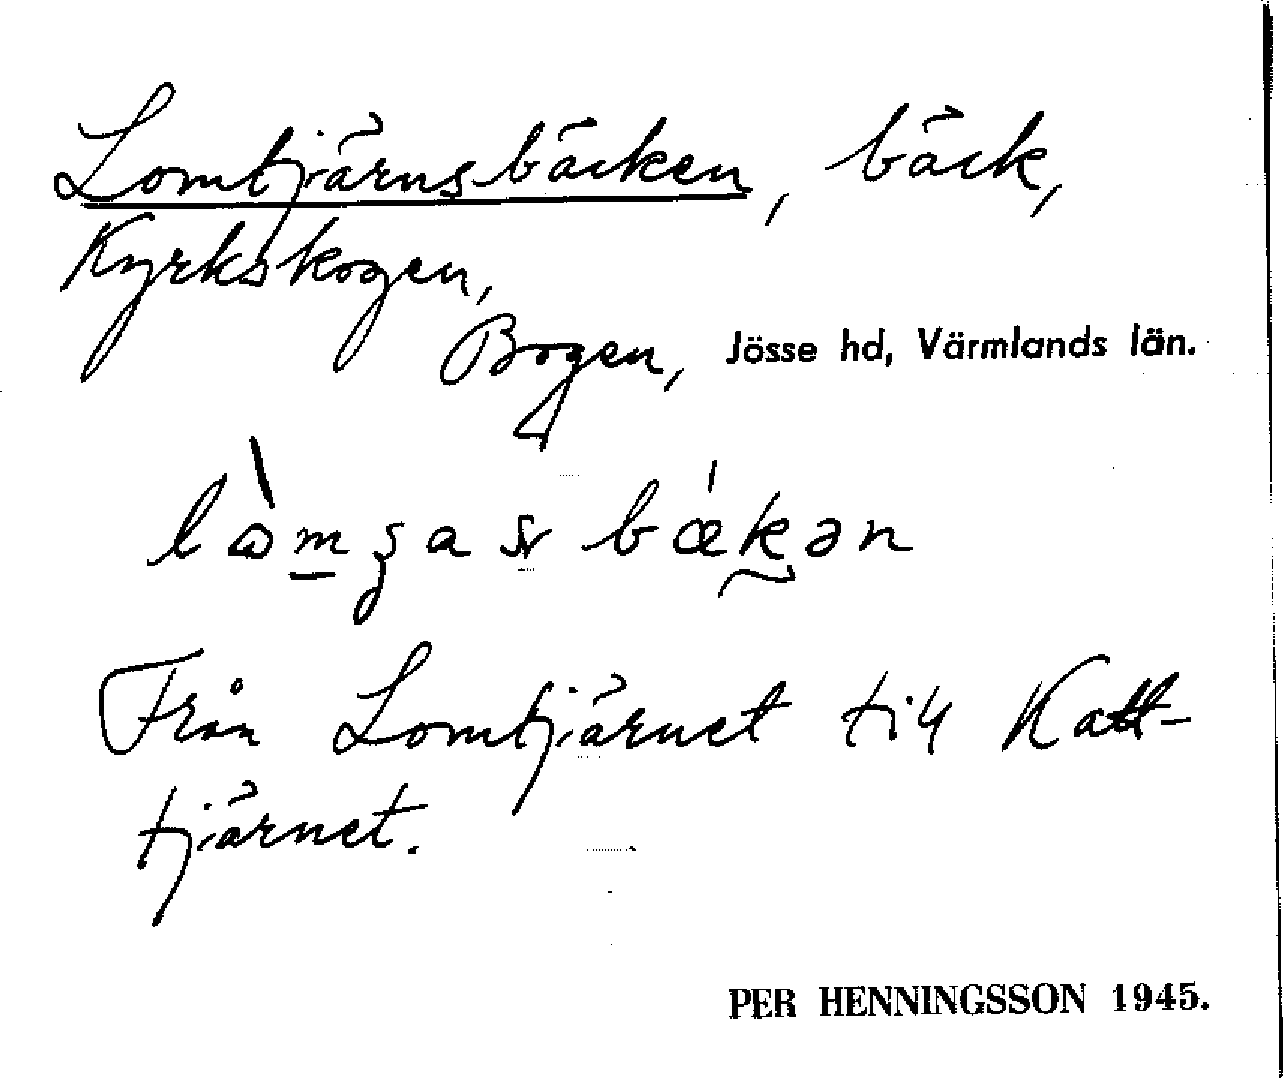 Lomtjärnsbäcken, bäck,
Kyrkskogen,
Bogen, Jösse hd, Värmlands län.
Från Lomtjärnet till Katt-
tjärnet.
PER HENNINGSSON 1945.